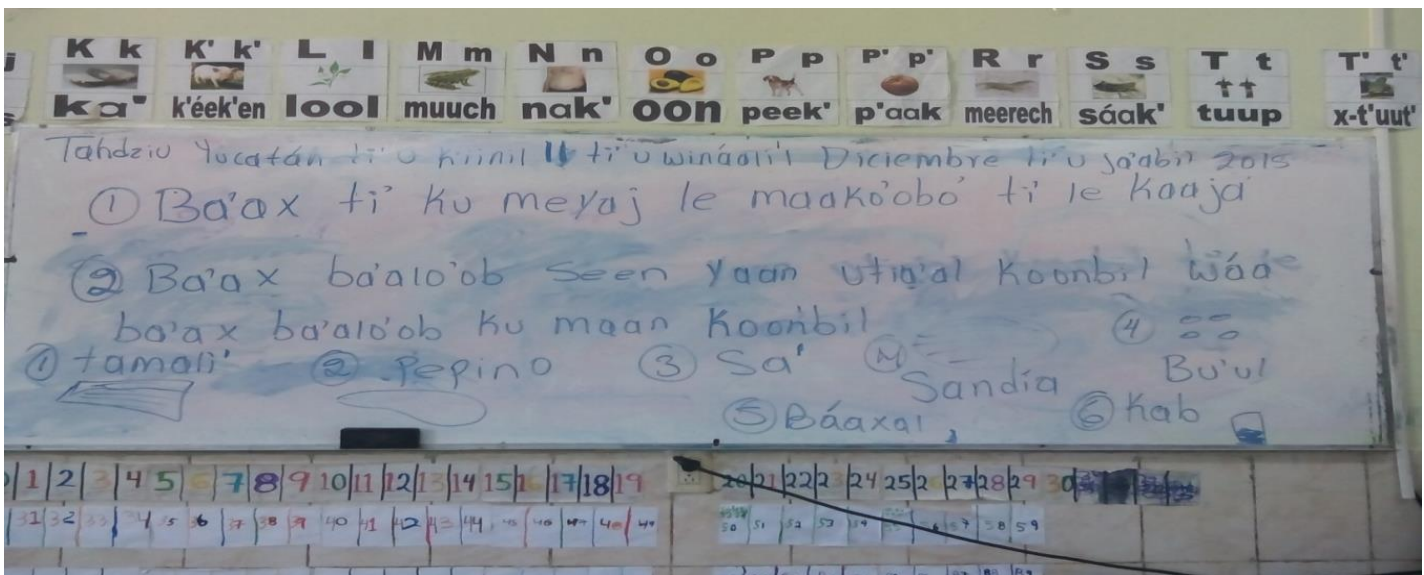 K k K' k' L l M m N n O o P p P' p' R r S s T t T' t'
ka' k'éek'en lool muuch nak' oon peek' p'aak meerech sáak' tuup x-t'uut'
Tahdziu Yucatán ti' u kiinil 11 ti' u wináalil Diciembre ti' u ja'abil 2015
① Ba'ax ti' ku meyaj le maako'obo' ti' le kaaja'
② Ba'ax ba'alo'ob seen yaan utia'al koonbil wáa
ba'ax ba'alo'ob ku maan koonbil
① tamali' ② Pepino ③ Sa' ④ Sandía ④ Bu'ul
⑤ Báaxal ⑥ Kab
1 2 3 4 5 7 8 9 10 11 12 13 14 15 16 17 18 19 20 21 22 23 24 25 2 27 28 29 30
31 32 33 34 35 36 37 38 39 40 41 42 43 44 45 46 47 48 49 50 51 52 53 54 56 57 58 59